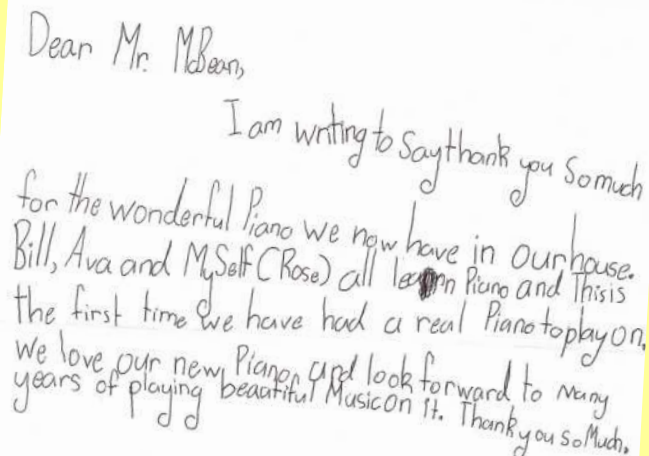 Dear Mr. McBean,
I am writing to Say thank you So much
for the wonderful Piano we now have in our house.
Bill, Ava and MySelf (Rose) all learn Piano and This is
the first time we have had a real Piano to play on.
We love our new Piano and look forward to Many
years of playing beautiful Music on it. Thank you so Much.